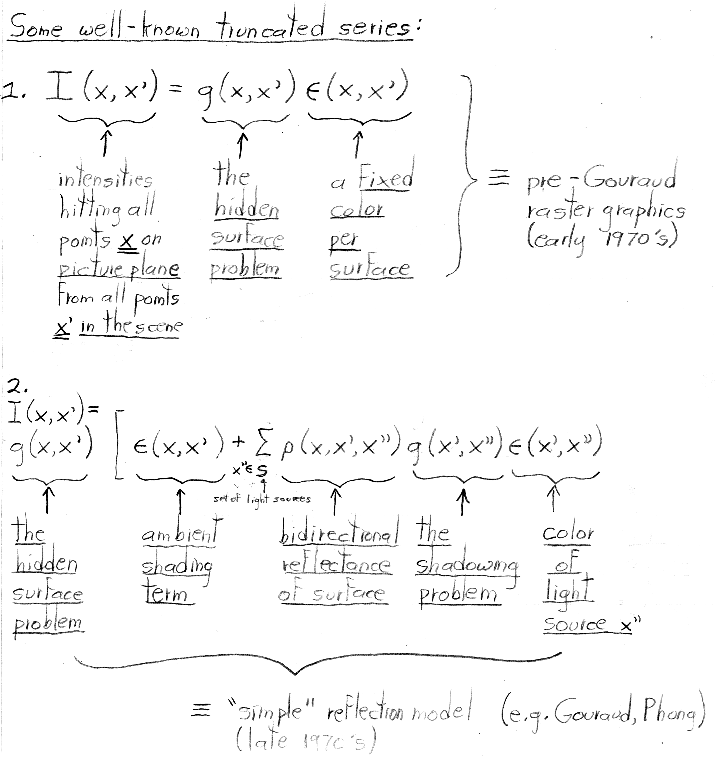 Some well-known truncated series:
1. I(x,x') = g(x,x') ϵ(x,x')
intensities
hitting all
points x on
picture plane
from all points
x' in the scene
the
hidden
surface
problem
a fixed
color
per
surface
≡ pre-Gouraud
raster graphics
(early 1970's)
2.
I(x,x')=
g(x,x') [ ϵ(x,x') + Σ ρ(x,x',x'') g(x',x'') ϵ(x',x'')
x''ϵS
set of light sources
the
hidden
surface
problem
ambient
shading
term
bidirectional
reflectance
of surface
the
shadowing
problem
color
of
light
source x''
≡ "simple" reflection model (e.g. Gouraud, Phong)
(late 1970's)